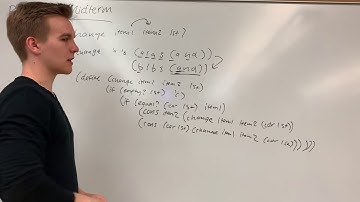 Midterm
change item1 item2 lst)
change 'a 'b '(a l a s (a n a))
(b l b s (a n a))
(define (change item1 item2 lst)
(if (empty? lst) '()
(if (equal? (car lst) item1)
(cons item2 (change item1 item2 (cdr lst))
(cons (car lst) (change item1 item2 (cdr lst)))))))